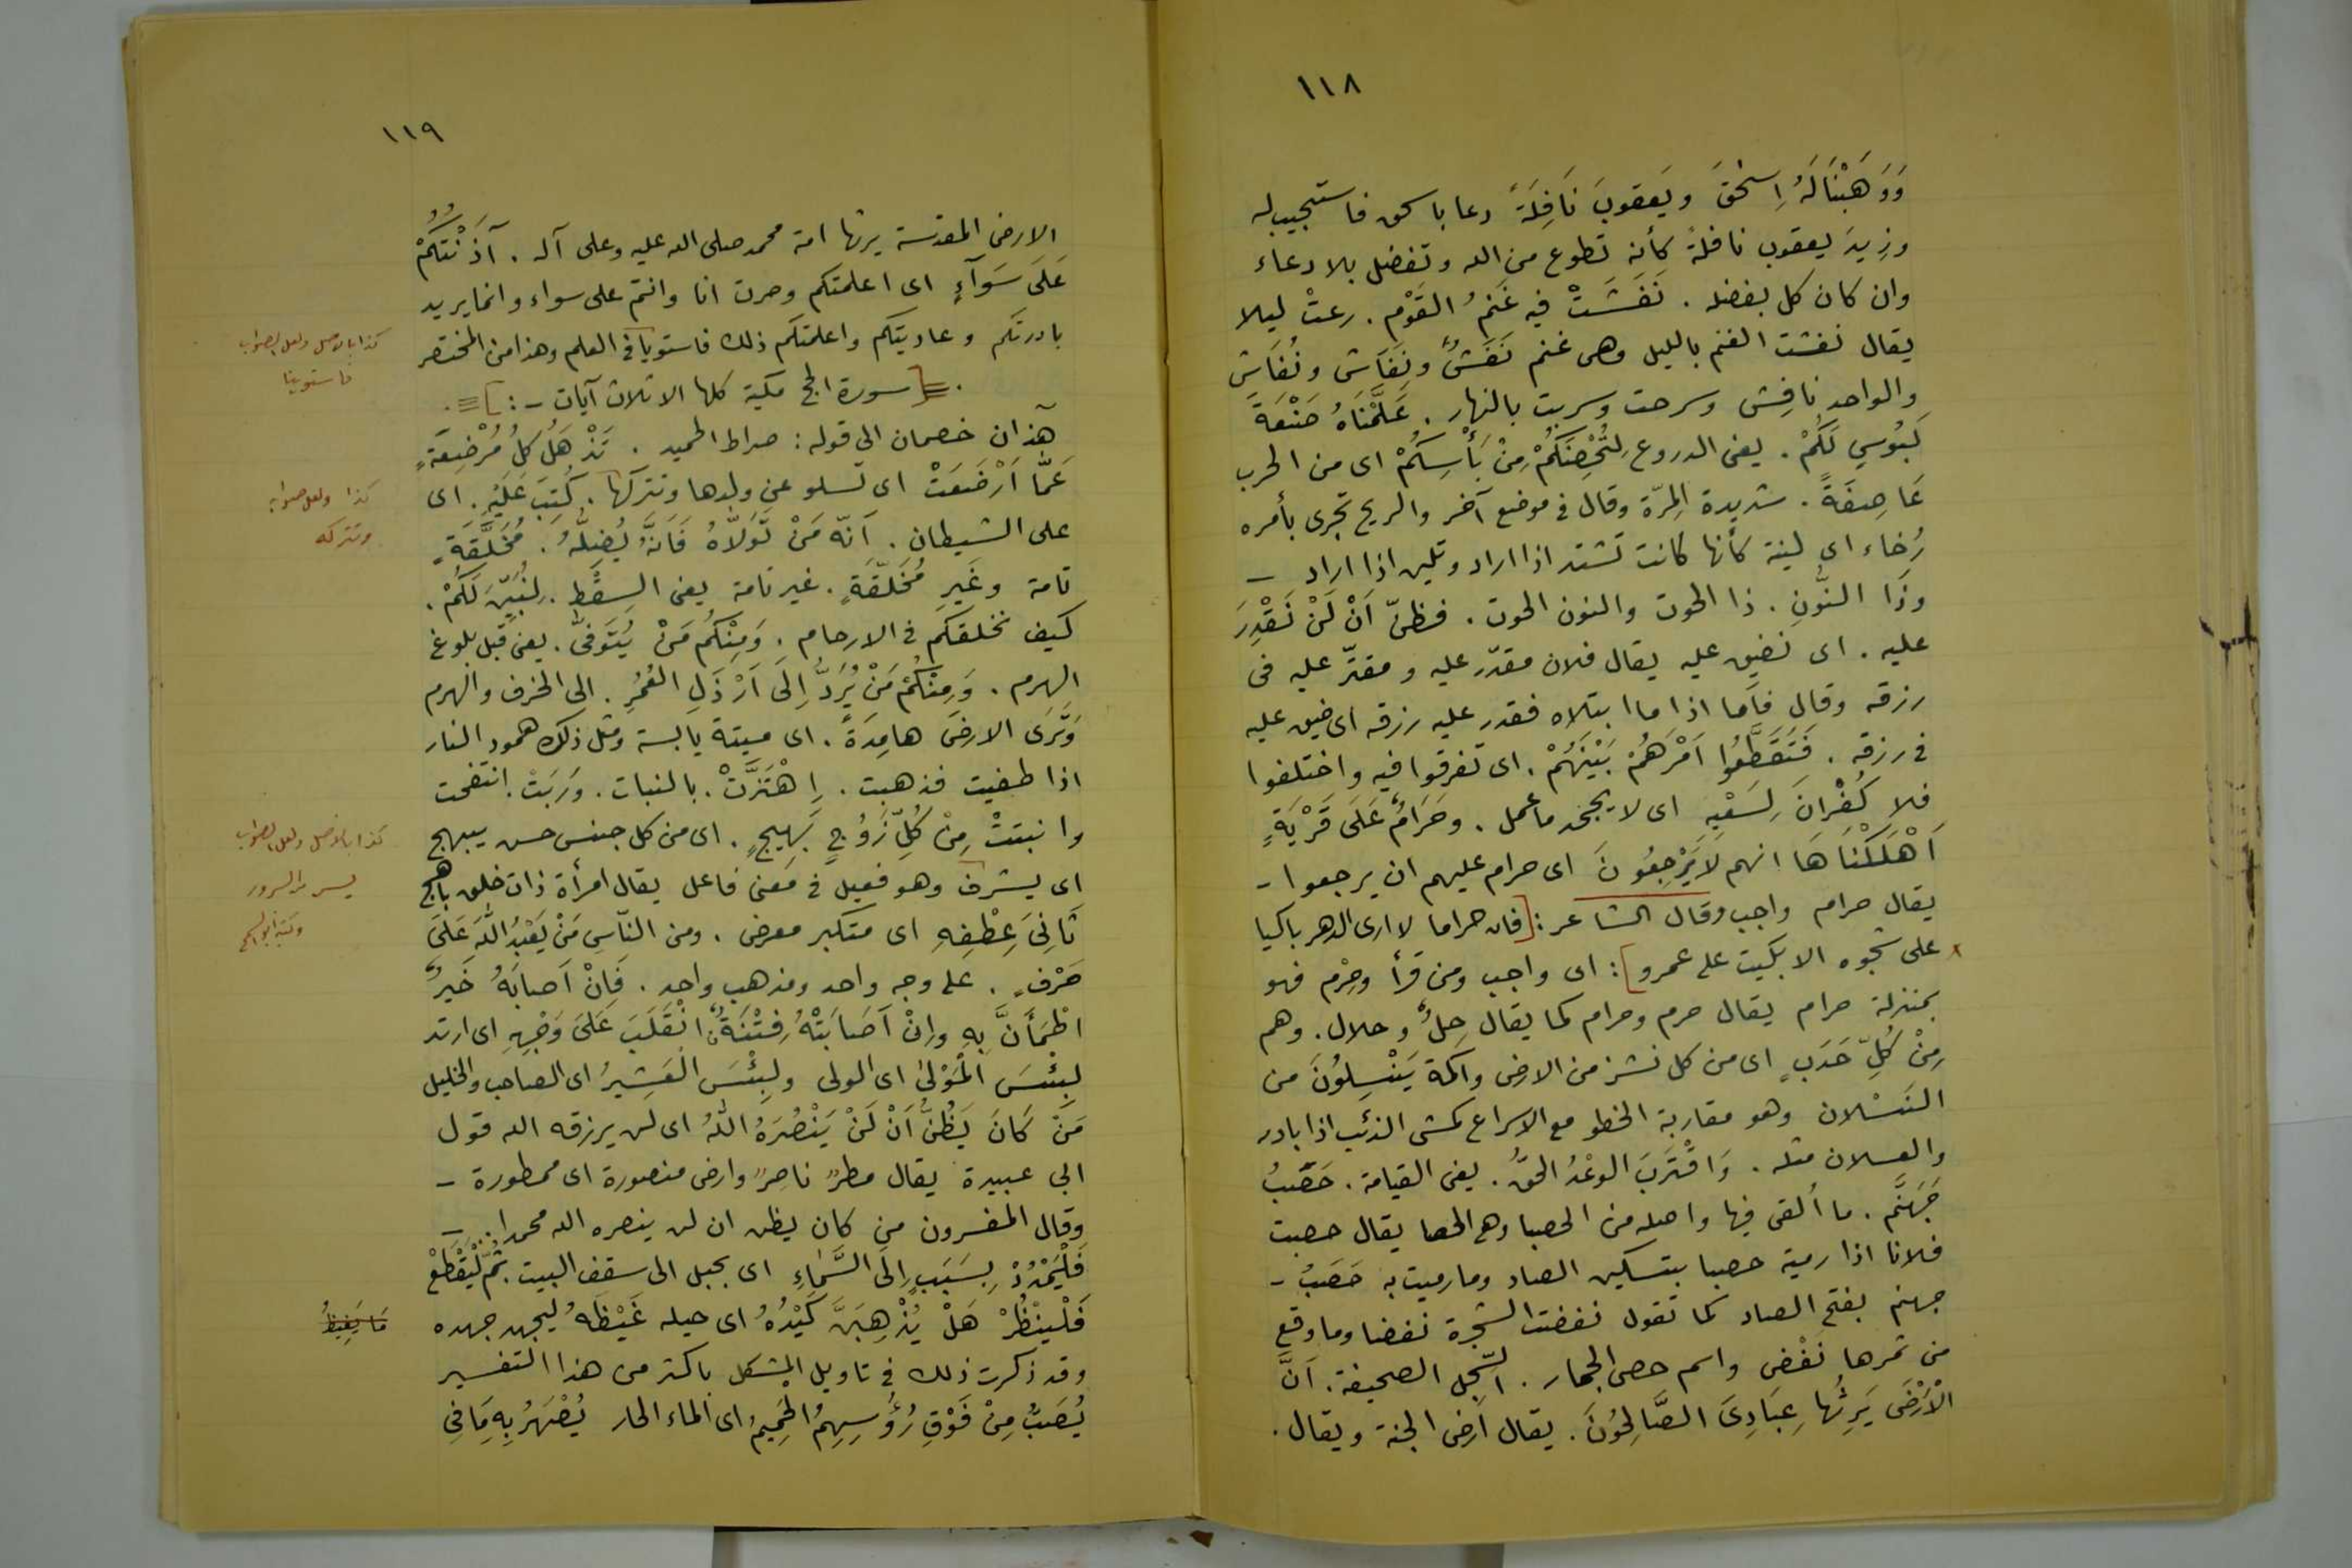 ١١٨
وَوَهَبْنَا لَهُ اِسْحٰقَ ويَعقوبَ نَافِلَةً دعا باسحق فاستجيب له
وزِيدَ يعقوب نافلةً كأنه تطوع من الله وتفضل بلا دعاء
وان كان كل بفضله . نَفَشَتْ فيه غَنَمُ القَوْمِ . رعتْ ليلا
يقال نفشت الغنم بالليل وهى غنم نَفَشٌ ونِفَاش ونُفَاش
والواحد نافِش وسرحت وسربت بالنهار . عَلَّمْنَاهُ صَنْعَةَ
لَبُوسٍ لَكُمْ . يعنى الدروع لِتُحْصِنَكُمْ مِنْ بَأْسِكُمْ اى من الحرب
عَاصِفَةً . شديدة المِرّة وقال فى موضع آخر والريح تجرى بأمره
رُخاء اى لينة كأنها كانت تشتد اذا اراد وتلين اذا اراد –
وذَا النُّونِ . ذا الحوت والنون الحوت . فظنّ اَنْ لَنْ نَقْدِرَ
عليه . اى نضيق عليه يقال فلان مقدّر عليه ومقتّر عليه فى
رزقه وقال فأما اذا ما ابتلاه فقدر عليه رزقه اى ضيق عليه
فى رزقه . فَتَقَطَّعُوا اَمْرَهُمْ بَيْنَهُمْ . اى تفرقوا فيه واختلفوا
فلا كُفْرانَ لِسَعْيِهِ اى لا يجحد ما عمل . وحَرَامٌ عَلَى قَرْيَةٍ
اَهْلَكْنَاهَا انهم لَا يَرْجِعُونَ اى حرام عليهم ان يرجعوا -
يقال حرام واجب وقال الشاعر : [فان حراما لا ارى الدهر باكيا
على شجوه الا بكيت على عمرو] : اى واجب ومن قرأ وحِرْم فهو
بمنزلة حرام يقال حرم وحرام كما يقال حِلٌّ وحلال . وهم
مِنْ كُلِّ حَدَبٍ اى من كل نشز من الارض واكمة يَنْسِلُونَ من
النَسْلان وهو مقاربة الخطو مع الاسراع كمشى الذئب اذا بادر
والعسلان مثله . وَاقْتَرَبَ الوعْدُ الحقُّ . يعنى القيامة . حَصَبُ
جَهَنَّم . ما ألقى فيها واصله من الحصبا وهى الحصا يقال حصبت
فلانا اذا رميته حصبا بتسكين الصاد وما رميت به حَصَبُ -
جهنم بفتح الصاد كما تقول نفضت الشجرة نفضا وما وقع
من ثمرها نَفْض واسم حصى الجمار . السّجل الصحيفة . اَنَّ
الْاَرْضَ يَرِثُهَا عِبَادِىَ الصَّالِحُونَ . يقال اَرض الجنة ويقال .
١١٩
الارض المقدسة يرثها امة محمد صلى الله عليه وعلى آله . آذَنْتُكُمْ
عَلَى سَوَآءٍ اى اعلمتكم وصرت انا وانتم على سواء وانما يريد
بادرتكم وعاديتكم واعلمتكم ذلك فاستويا فى العلم وهذا من المختصر
[سورة الحج مكية كلها الا ثلاث آيات -:]
هٰذان خصمان الى قوله : صراط الحميد . تَذْهَلُ كلُّ مُرْضِعَةٍ
عَمَّا اَرْضَعَتْ اى تسلو عن ولدها وتتركها . كُتِبَ عَلَيْهِ . اى
على الشيطان . اَنّه مَنْ تَوَلَّاهُ فَاَنَّهُ يُضِلُّهُ . مُخَلَّقَةٍ
تامة وغَيرِ مُخَلَّقَةٍ . غير تامة يعنى السِقْط . لِنُبَيِّنَ لَكُمْ .
كيف نخلقكم فى الارحام . وَمِنْكُم مَنْ يُتَوَفىّٰ . يعنى قبل بلوغ
الهرم . وَمِنْكُمْ مَنْ يُرَدُّ اِلَى اَرْذَلِ العُمُرِ . الى الخرف والهرم
وَتَرَى الارضَ هامِدَةً . اى ميتة يابسة ومثل ذلك همود النار
اذا طفيت فذهبت . اِهْتَزَّتْ . بالنبات . وَرَبَتْ . انتفخت
وانبتتْ مِنْ كُلِّ زَوْجٍ بَهِيجٍ . اى من كل جنس حسن يبهج
اى يشرف وهو فعيل فى معنى فاعل يقال امرأة ذات خلق باهج
ثَانِىَ عِطْفِهِ اى متكبر معرض . ومن النّاسِ مَنْ يَعْبُدُ اللّٰهَ عَلَى
حَرْفٍ . على وجه واحد ومذهب واحد . فَاِنْ اَصابَهُ خَيرٌ
اطْمَأَنَّ بِهِ واِنْ اَصَابَتْهُ فِتْنَةٌ انْقَلَبَ عَلَىٰ وَجْهِهِ اى ارتد
لبِئْسَ الْمَوْلىٰ اى الولى ولبِئْسَ الْعَشِيرُ اى الصاحب والخليل
مَنْ كَانَ يَظُنُّ اَنْ لَنْ يَنْصُرَهُ اللّٰهُ اى لن يرزقه الله قول
ابى عبيدة يقال مطرٌ ناصرٌ وارض منصورة اى ممطورة –
وقال المفسرون من كان يظن ان لن ينصره الله محمدا . –
فَلْيَمْدُدْ بِسَبَبٍ اِلَى السَّمَاءِ اى بحبل الى سقف البيت . ثُمَّ لْيَقْطَعْ
فَلْيَنْظُرْ هَلْ يُذْهِبَنَّ كَيْدُهُ اى حيله غَيْظَهُ ليجهد جهده
وقد ذكرت ذلك فى تاويل المشكل باكثر من هذا التفسير
يُصَبُّ مِنْ فَوْقِ رُؤُسِهِمُ الْحَمِيمُ اى الماء الحار يُصْهَرُ بِهِ مَا فِى
كذا بالاصل ولعل الصواب
فاستوينا
كذا ولعل صوابه
وتتركه
كذا بالاصل ولعل الصواب
يسر من السرور
مَا يَغِيظُ